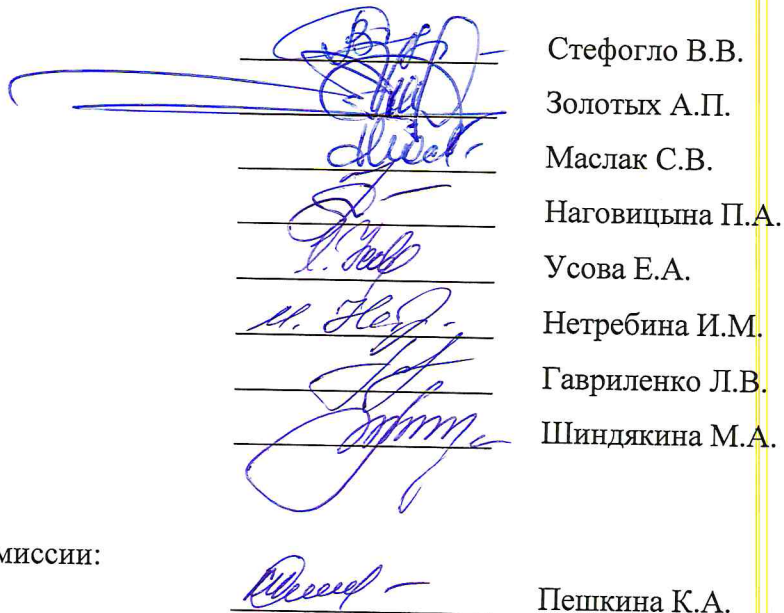 Стефогло В.В.
Золотых А.П.
Маслак С.В.
Наговицына П.А.
Усова Е.А.
Нетребина И.М.
Гавриленко Л.В.
Шиндякина М.А.
миссии:
Пешкина К.А.